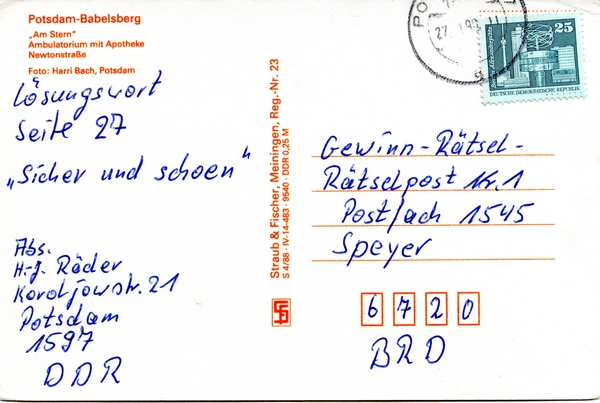 Potsdam-Babelsberg
„Am Stern"
Ambulatorium mit Apotheke
Newtonstraße
Foto: Harri Bach, Potsdam
Lösungswort
Seite 27
„Sicher und schoen"
Abs.
H.-J. Räder
Koroljowstr. 21
Potsdam
1597
DDR
Straub & Fischer, Meiningen, Reg.-Nr. 23
S 4/88 · IV-14-483 · 9540 · DDR 0,25 M
25
DEUTSCHE DEMOKRATISCHE REPUBLIK
Gewinn-Rätsel-
Rätselpost Nr. 1
Postfach 1545
Speyer
6720
BRD